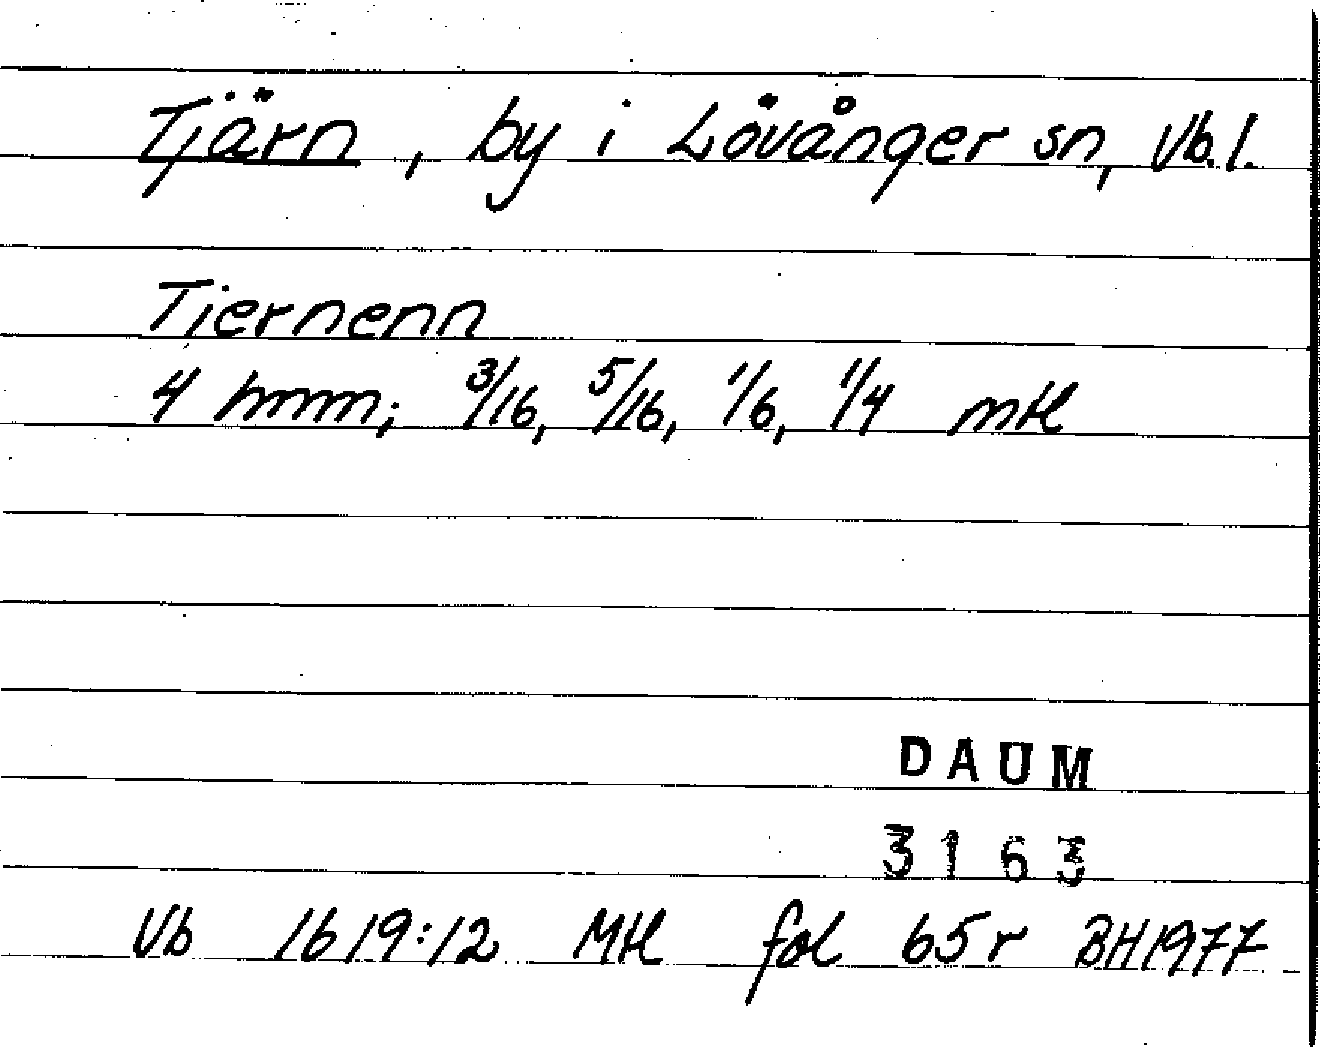 Tjärn, by i Lövånger sn, Vb.l.
Tiernenn
4 hmm; 3/16, 5/16, 1/6, 1/4 mtl
DAUM
3163
Vb 1619:12 Mtl fol 65r BH1977